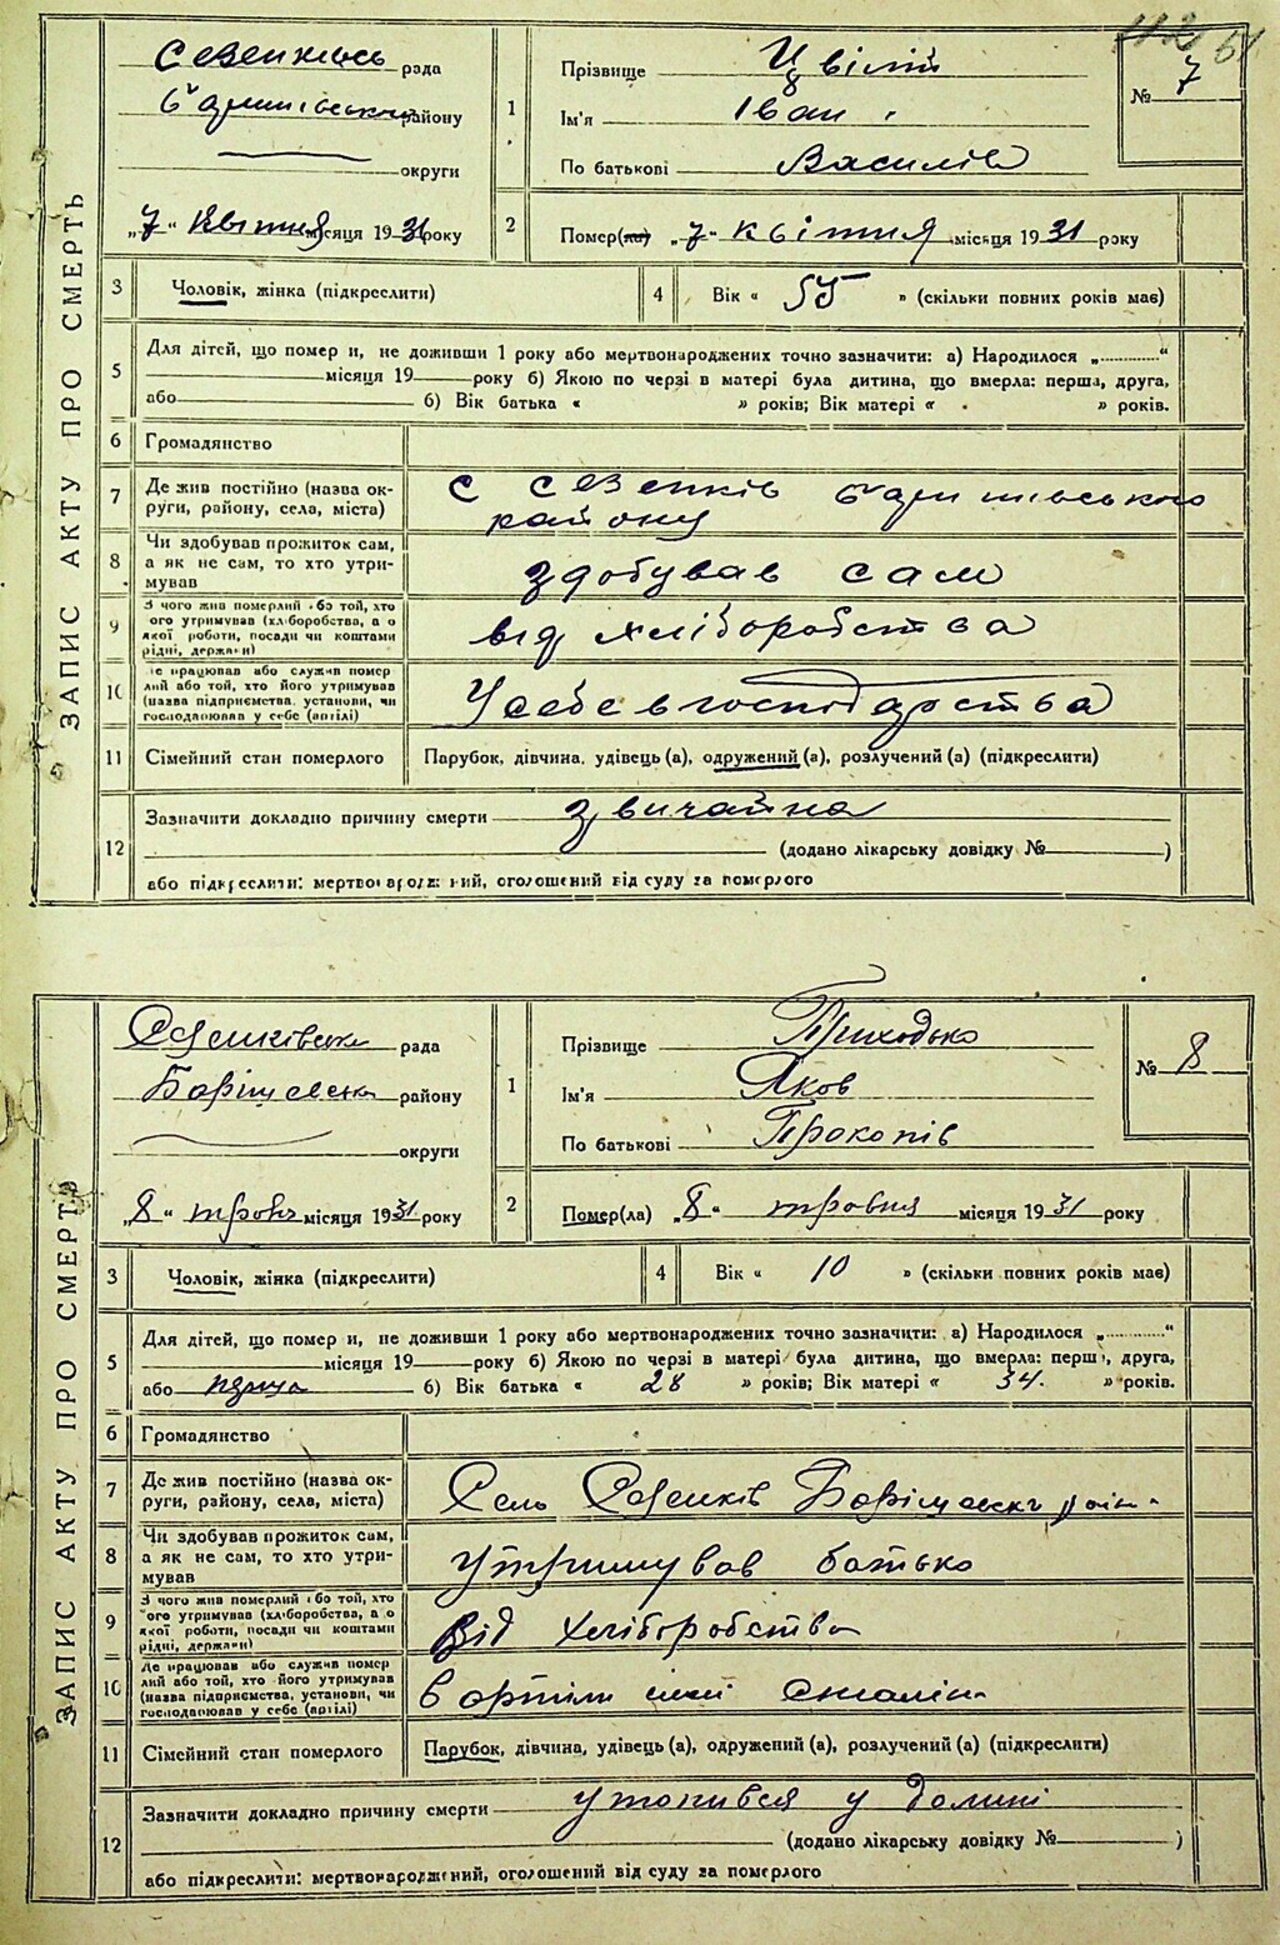 61
ЗАПИС АКТУ ПРО СМЕРТЬ
рада
району
округи
„7“ Квітня місяця 1931 року
1
Прізвище Цвілій
Ім'я Іван
По батькові Василів
№ 7
2 Помер(ла) „7“ квітня місяця 1931 року
3 Чоловік, жінка (підкреслити)
4 Вік « 55 » (скільки повних років має)
5 Для дітей, що помер и, не доживши 1 року або мертвонароджених точно зазначити: а) Народилося „............“
місяця 19 року б) Якою по черзі в матері була дитина, що вмерла: перша, друга,
або б) Вік батька « » років; Вік матері « » років.
6 Громадянство
7 Де жив постійно (назва ок-
руги, району, села, міста)
с Сезенків
району
8 Чи здобував прожиток сам,
а як не сам, то хто утри-
мував
здобував сам
9 З чого жив померлий або той, хто
ого утримував (хліборобства, а о
якої роботи, посади чи коштами
рідні, держави)
від хліборобства
10 Де працював або служив помер
лий або той, хто його утримував
(назва підприємства, установи, чи
господарював у себе (артілі)
У себе в господарства
11 Сімейний стан померлого
Парубок, дівчина, удівець (а), одружений (а), розлучений (а) (підкреслити)
12 Зазначити докладно причину смерти звичайна
(додано лікарську довідку № )
або підкреслити: мертвонароджений, оголошений від суду за померлого
ЗАПИС АКТУ ПРО СМЕРТЬ
Сезенківська рада
району
округи
„8“ травня місяця 1931 року
1
Прізвище Приходько
Ім'я Яков
По батькові Прокопів
№ 8
2 Помер(ла) „8“ травня місяця 1931 року
3 Чоловік, жінка (підкреслити)
4 Вік « 10 » (скільки повних років має)
5 Для дітей, що помер и, не доживши 1 року або мертвонароджених точно зазначити: а) Народилося „............“
місяця 19 року б) Якою по черзі в матері була дитина, що вмерла: перша, друга,
або перша б) Вік батька « 28 » років; Вік матері « 34. » років.
6 Громадянство
7 Де жив постійно (назва ок-
руги, району, села, міста)
Село Сезенків
8 Чи здобував прожиток сам,
а як не сам, то хто утри-
мував
утримував батько
9 З чого жив померлий або той, хто
ого утримував (хліборобства, а о
якої роботи, посади чи коштами
рідні, держави)
Від хліборобства
10 Де працював або служив помер
лий або той, хто його утримував
(назва підприємства, установи, чи
господарював у себе (артілі)
в артілі
11 Сімейний стан померлого
Парубок, дівчина, удівець (а), одружений (а), розлучений (а) (підкреслити)
12 Зазначити докладно причину смерти утопився у долині
(додано лікарську довідку № )
або підкреслити: мертвонароджений, оголошений від суду за померлого